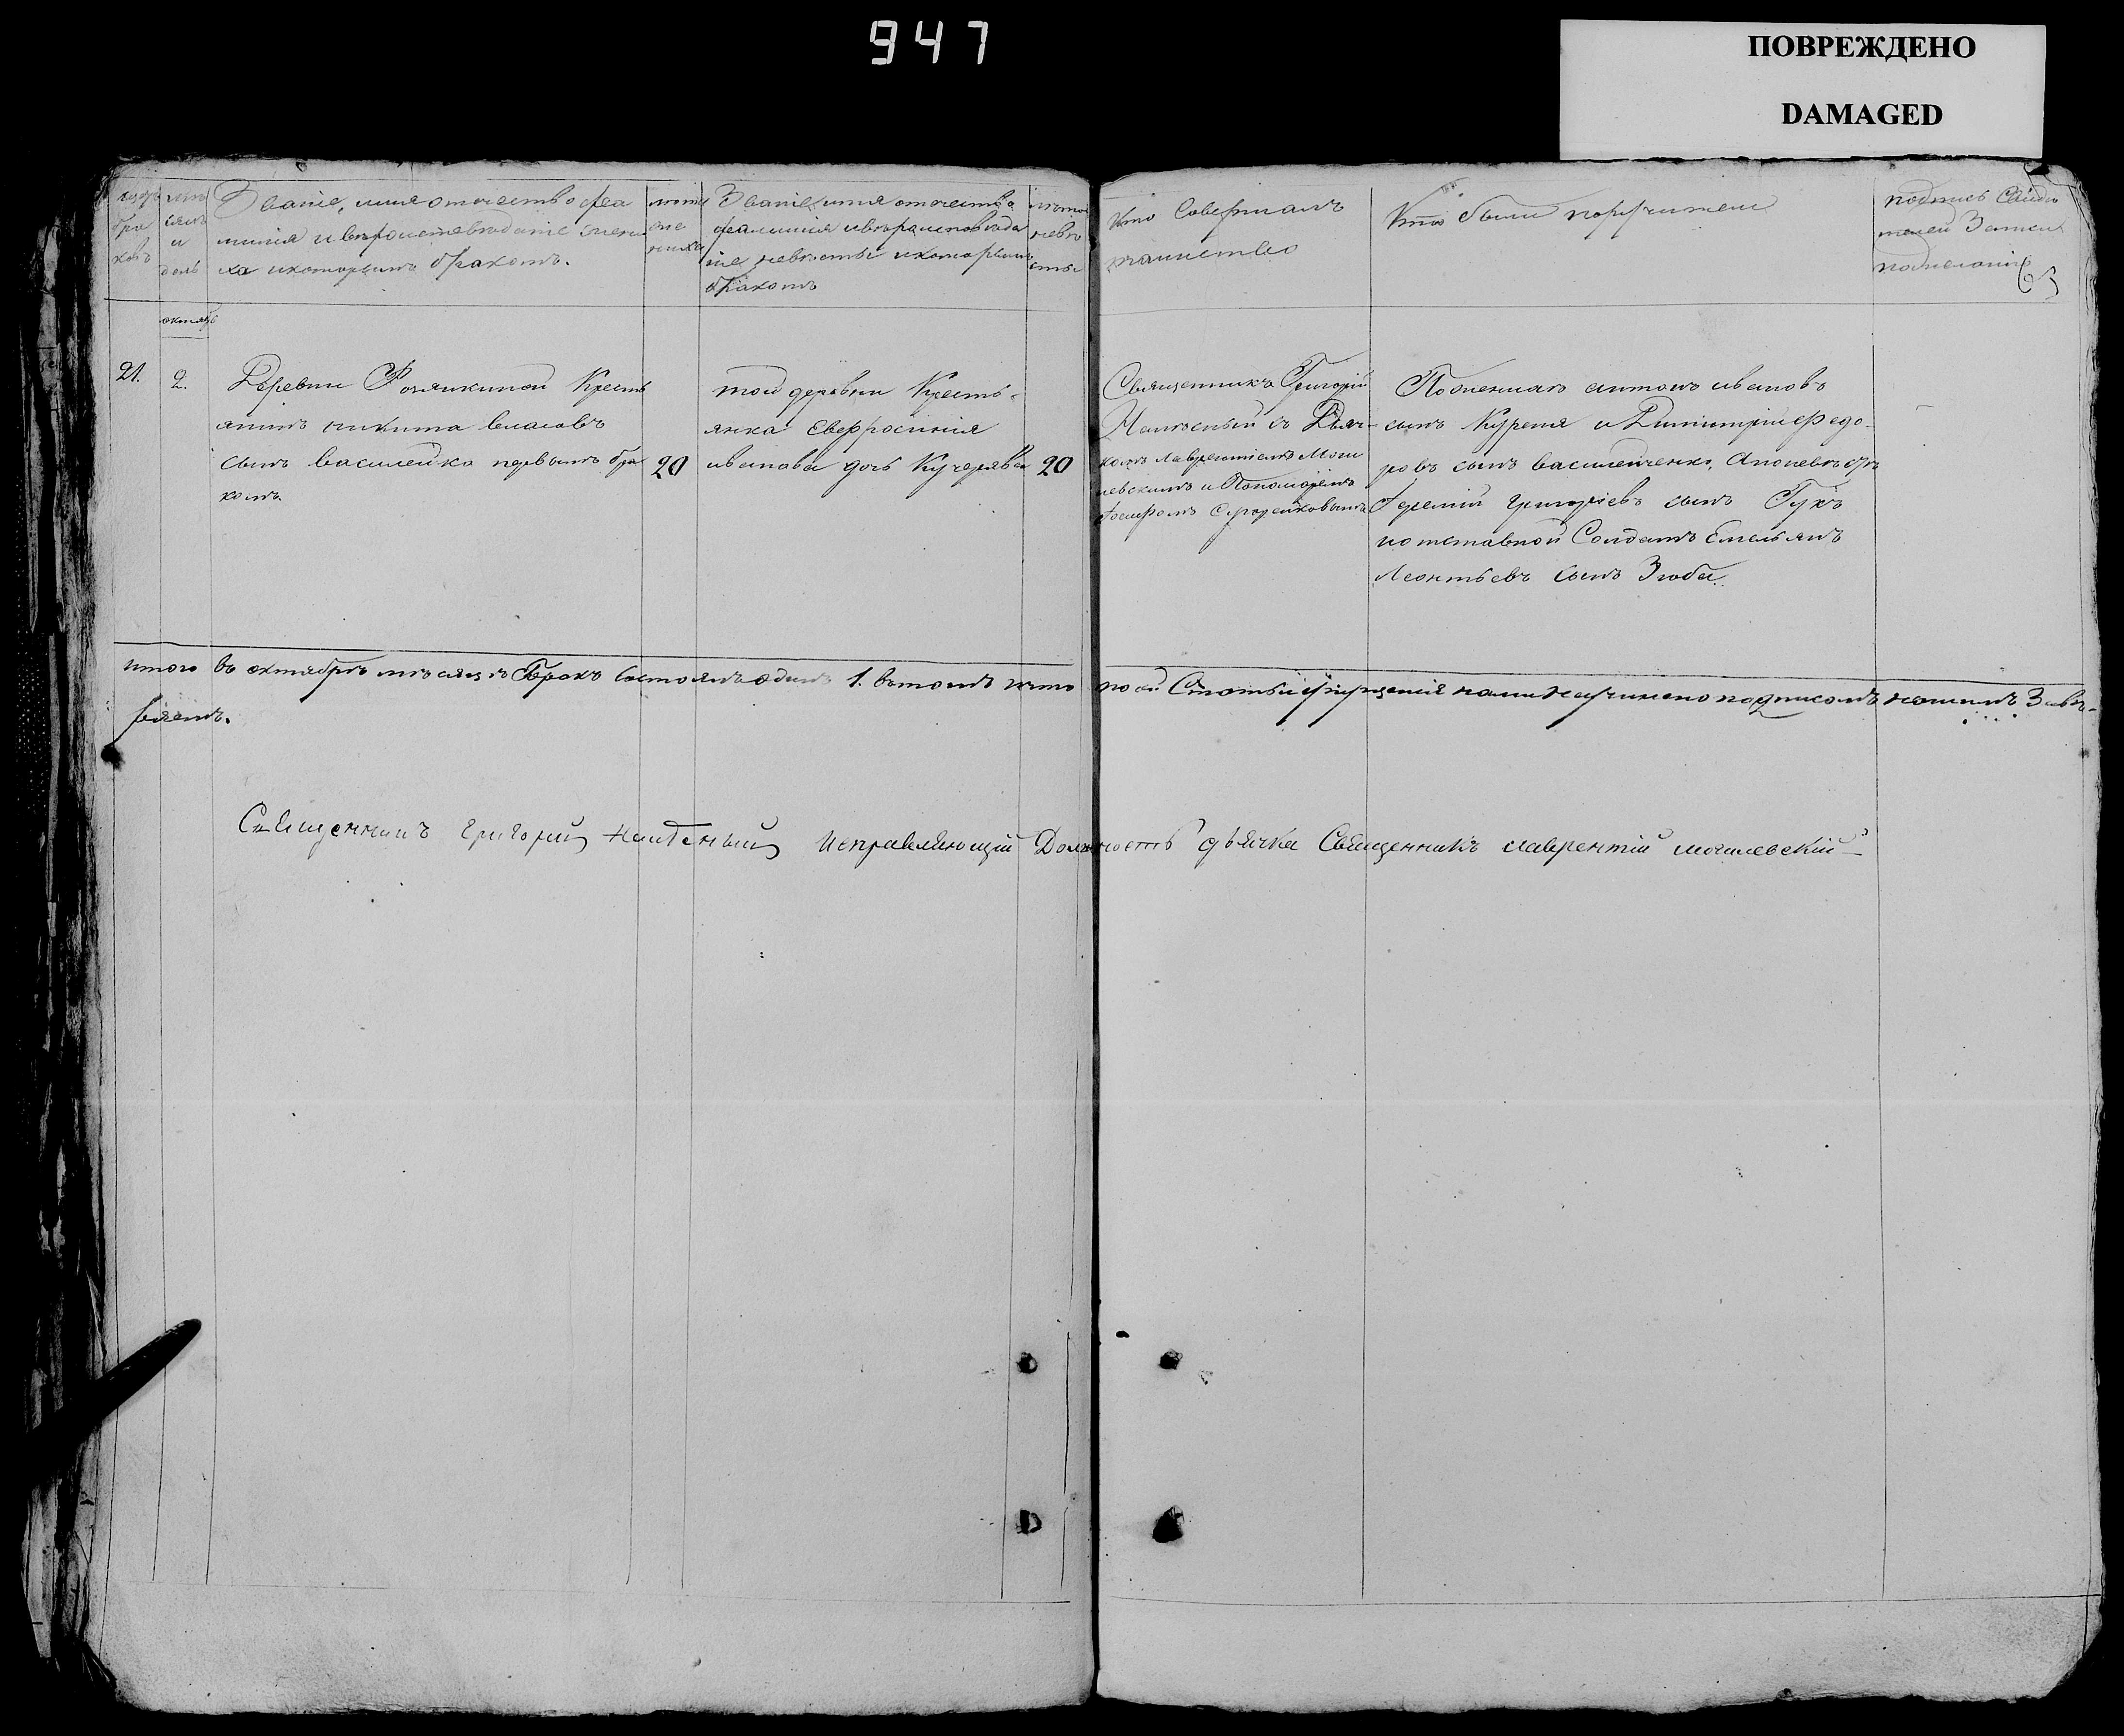 947
ПОВРЕЖДЕНО
DAMAGED
Званіе, имя отчество фа
милія и вѣроисповѣданіе жени
ха и которымъ бракомъ.
лѣта
же
ниха
Званіе, имя отчество
фамилія и вѣроисповѣда
ніе невѣсты и которымъ
бракомъ
лѣта
невѣ
сты
Кто Совершалъ
таинство
Кто были поручители
подпись Свидѣ
телей Записи
по желанію
65
октябрь
21.
2.
Деревни Кресть
янинъ никита власовъ
сынъ василейко первымъ бра
комъ
20
той деревни Кресть-
янка Евфросинія
иванова дочь Кучерява
20
Священникъ Григорій
съ Дьяч-
комъ Лаврентіемъ Моги
левскимъ и Пономорёмъ
Іосифомъ
По женихѣ антонъ ивановъ
сынъ Курепя и Димитрій федо-
ровъ сынъ василейченко, Апоневѣстѣ
Григоріевъ сынъ Гукъ
и отставной Солдатъ Емельянъ
Леонтьевъ сынъ Зюба.
итого въ октябрѣ мѣсяцѣ Бракъ состоялъ одинъ 1. въ томъ что по сей Статьи упущенія нами неучинено подписомъ нашимъ Завѣ-
ряемъ.
Священникъ Григорий Найденый Исправляющій Должность дьячка Священникъ лаврентій могилевскій